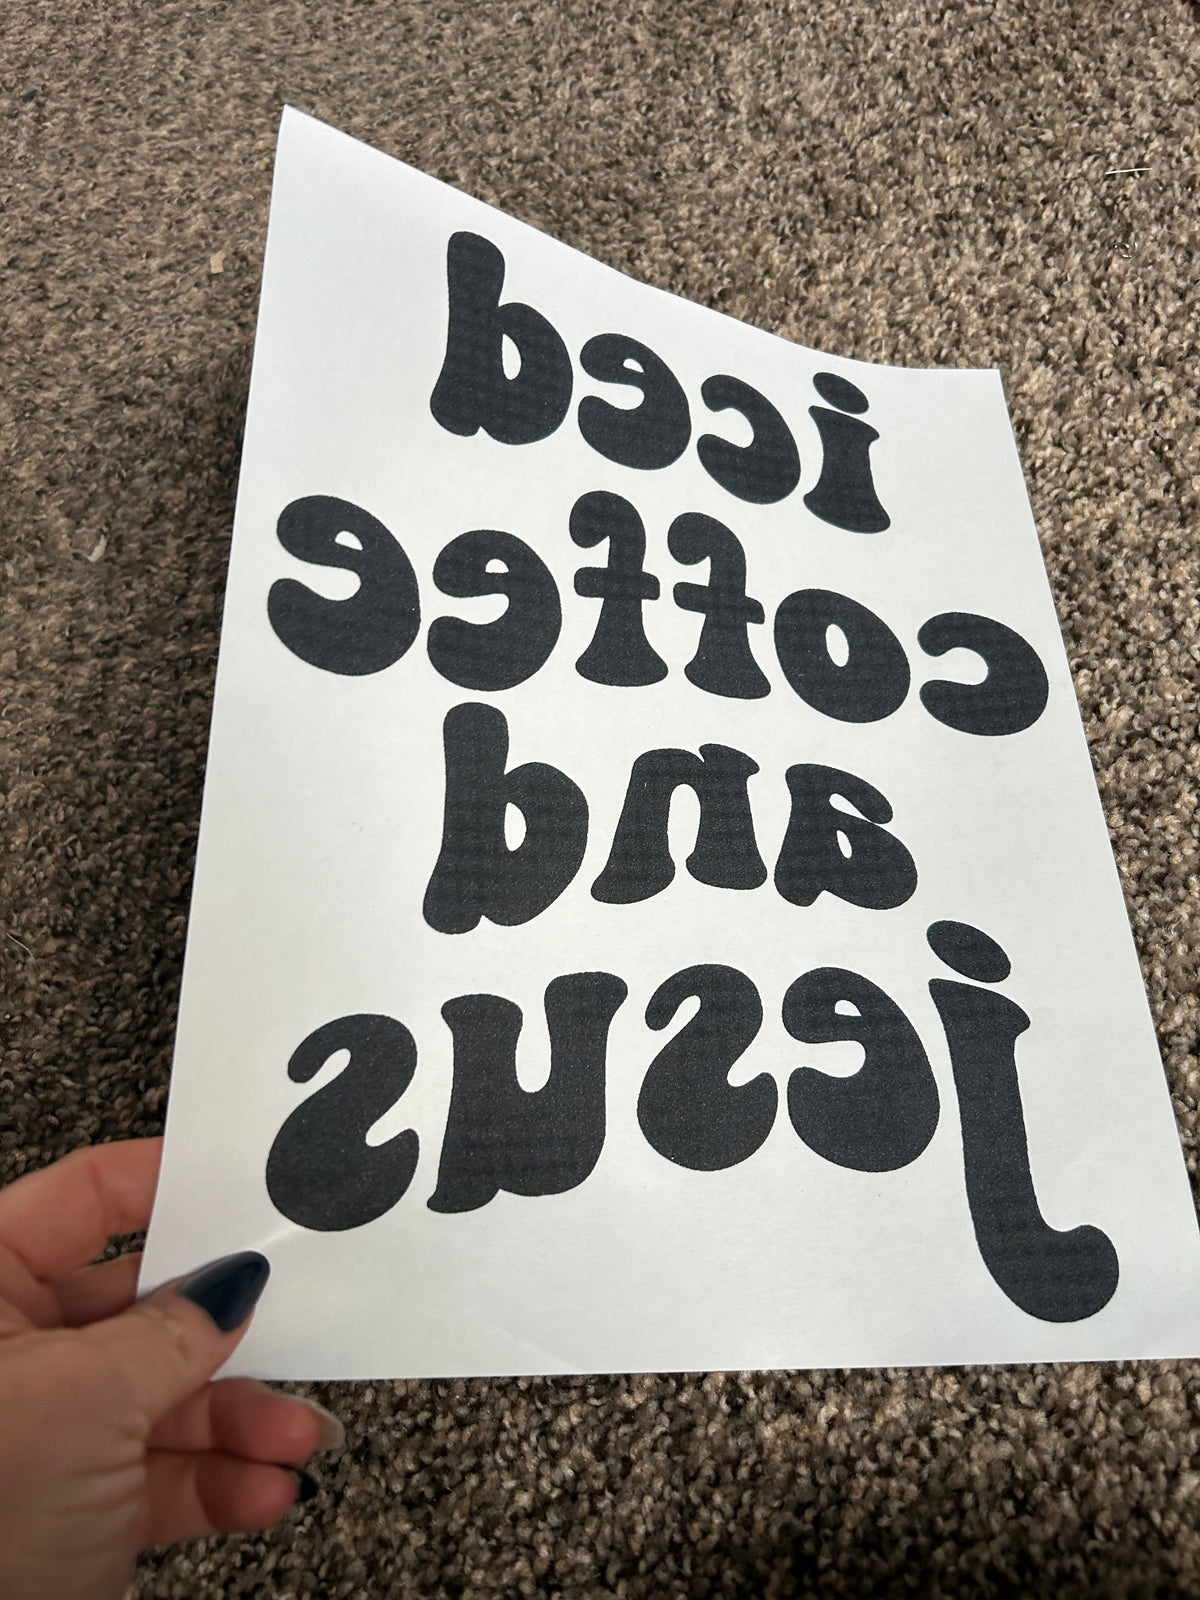 iced
coffee
and
jesus